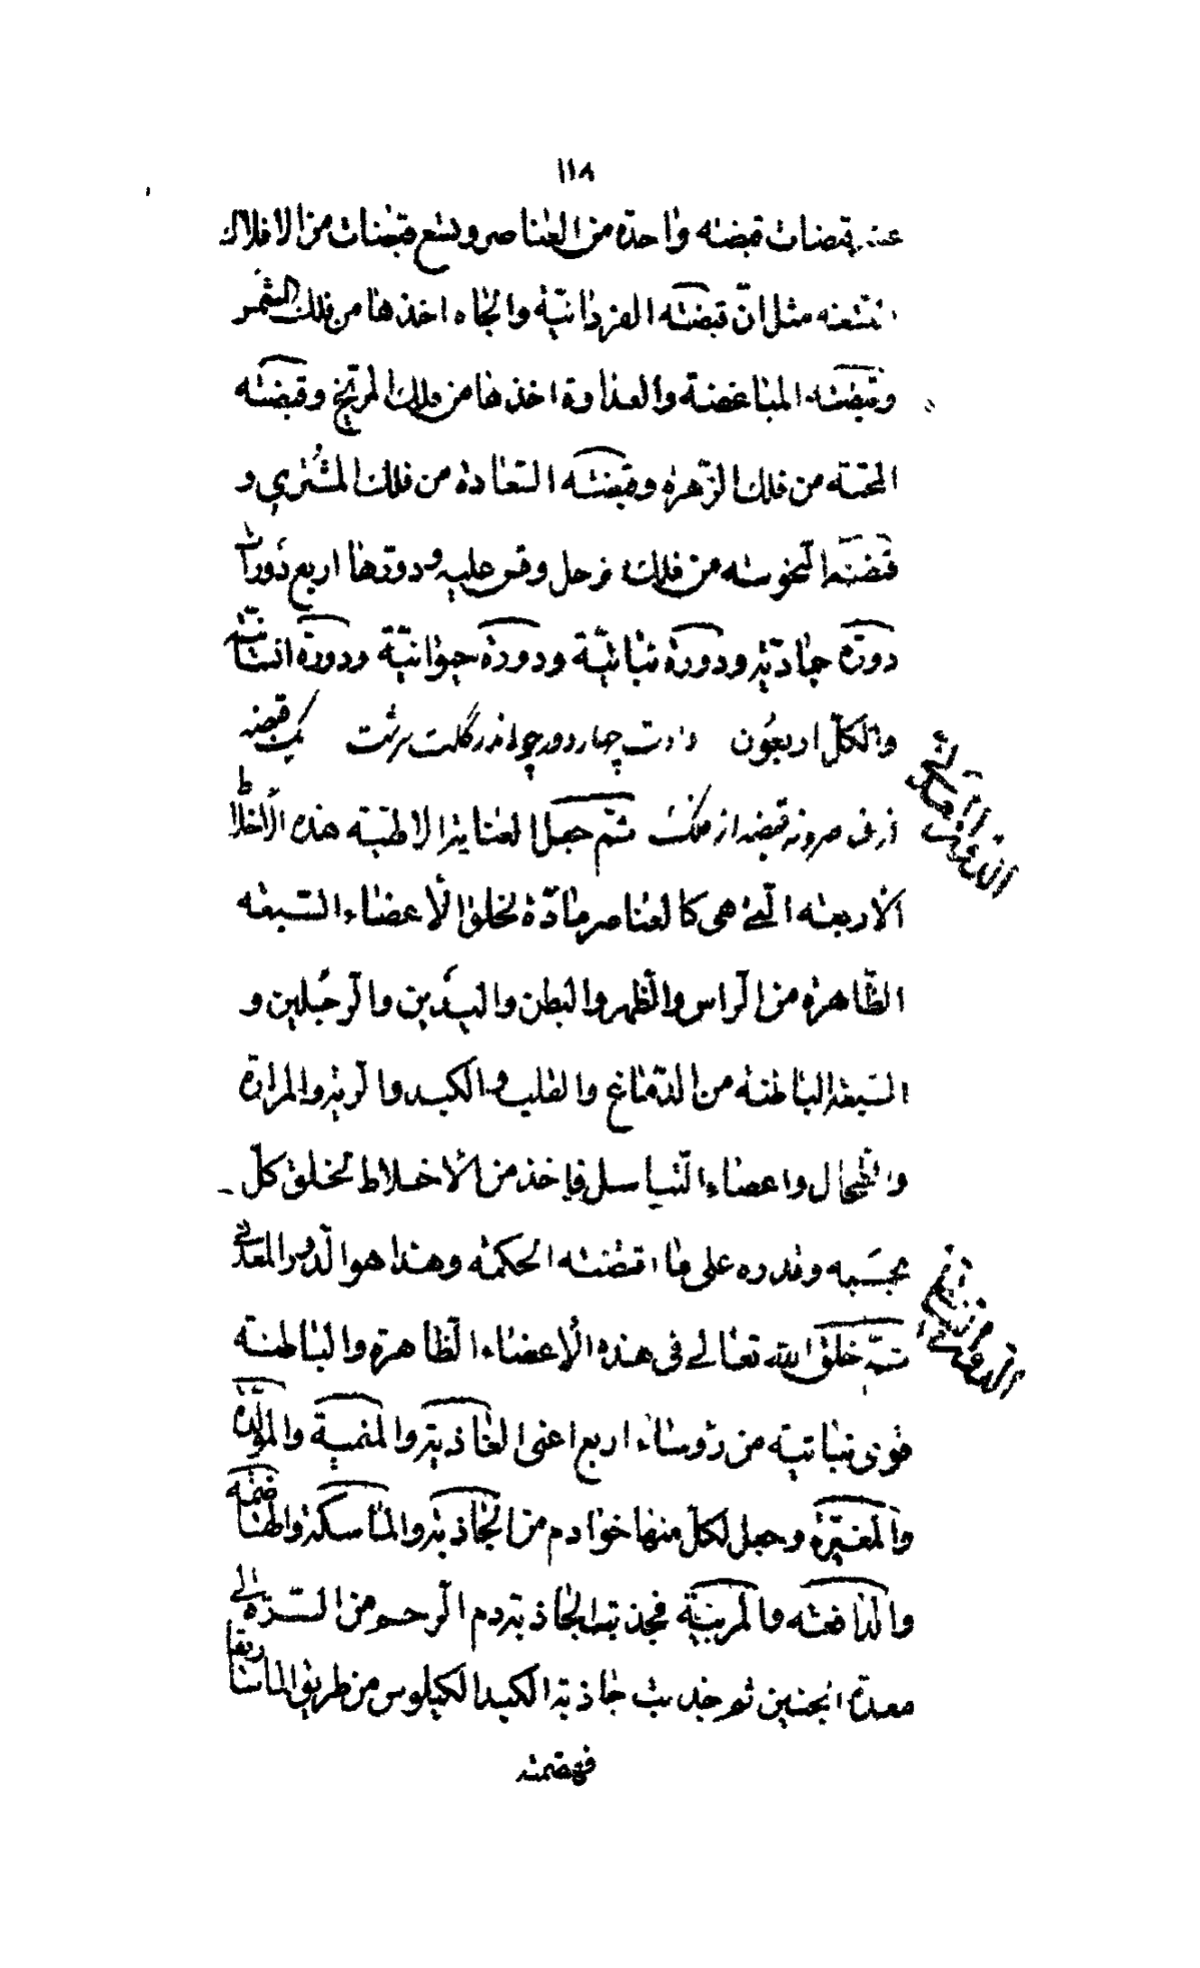 ١١٨
عشر قبضات قبضة واحدة من العناصر وتسع قبضات من الافلاك
التسعة مثل انّ قبضة الفردانيّة والجاه اخذها من فلك الشمس
وقبضة المباغضة والعداوة اخذها من فلك المرّيخ وقبضة
المحبّة من فلك الزّهرة وقبضة السّعادة من فلك المشتري و
قبضة النّحوسة من فلك زحل وقس عليه ودوّرها اربع دورات
دورة جماديّة ودورة نباتيّة ودورة حيوانيّة ودورة انسانيّة
والكلّ اربعون دادت چهار دور چو اندر گلت سرشت يک قبضه
از عنصر و نه قبضه از فلک ثمّ جعل العناية الالهيّة هذه الأخلاط
الأربعة الّتي هي كالعناصر مادّة لخلق الأعضاء السّبعة
الظّاهرة من الرّاس والظّهر والبطن واليدين والرّجلين و
السّبعة الباطنة من الدّماغ والقلب والكبد والرّية والمرارة
والطّحال واعضاء التّناسل فاخذ من الأخلاط لخلق كلّ
بحسبه وقدره على ما اقتضته الحكمة وهذا هو الدّور المعدني
ثمّ خلق الله تعالى في هذه الأعضاء الظّاهرة والباطنة
قوى نباتية من رؤساء اربع اعني الغاذية والمنمية والمولّدة
والمغيّرة وجعل لكلّ منها خوادم من الجاذبة والماسكة والهاضمة
والدّافعة والمربّية فجذبت الجاذبة دم الرّحم من السّرّة الى
معدة الجنين ثم جذبت جاذبة الكبد الكيلوس من طريق الماساريقا
فهضمته